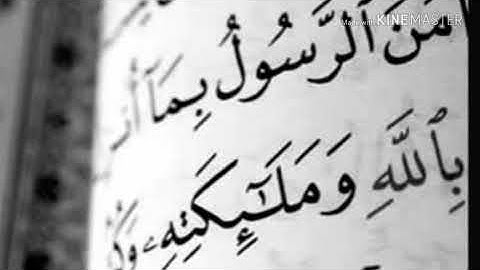 Made with KINEMASTER
ءَامَنَ ٱلرَّسُولُ بِمَآ
بِٱللَّهِ وَمَلَٰٓئِكَتِهِۦ